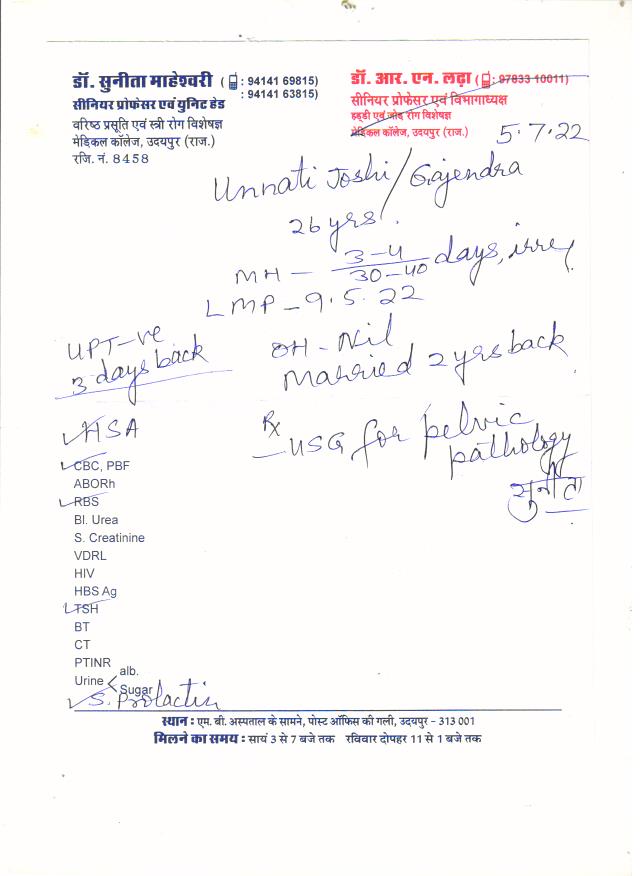 डॉ. सुनीता माहेश्वरी ( : 94141 69815)
: 94141 63815)
सीनियर प्रोफेसर एवं युनिट हेड
वरिष्ठ प्रसूति एवं स्त्री रोग विशेषज्ञ
मेडिकल कॉलेज, उदयपुर (राज.)
रजि. नं. 8458
डॉ. आर. एन. लढ़ा ( : 97833 10011)
सीनियर प्रोफेसर एवं विभागाध्यक्ष
हड्डी एवं जोड़ रोग विशेषज्ञ
मेडिकल कॉलेज, उदयपुर (राज.)
5.7.22
Unnati Joshi/Gajendra
26 yrs.
MH – 3-4/30-40 days, irreg
LMP – 9.5.22
UPT-ve
3 days back
OH - Nil
Married 2 yrs back
HSA
Rx
– USG for pelvic
pathology
सुनीता
CBC, PBF
ABORh
RBS
Bl. Urea
S. Creatinine
VDRL
HIV
HBS Ag
TSH
BT
CT
PTINR
Urine < alb.
Sugar
S. Prolactin
स्थान : एम. बी. अस्पताल के सामने, पोस्ट ऑफिस की गली, उदयपुर – 313 001
मिलने का समय : सायं 3 से 7 बजे तक रविवार दोपहर 11 से 1 बजे तक